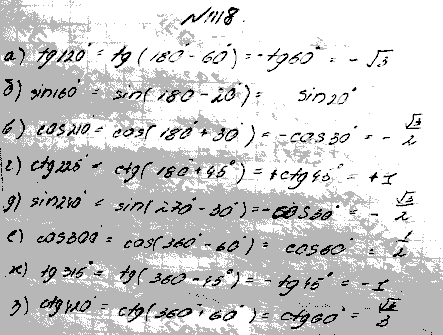 №1118.
а) tg120° = tg(180° - 60°) = -tg60° = -√3
б) sin160° = sin(180 - 20°) = sin20°
в) cos210 = cos(180° + 30°) = -cos30° = -√3/2
г) ctg225° = ctg(180° + 45°) = +ctg45° = +1
д) sin240° = sin(270° - 30°) = -cos30° = -√3/2
е) cos300° = cos(360° - 60°) = cos60° = 1/2
ж) tg315° = tg(360 - 45°) = -tg45° = -1
з) ctg420° = ctg(360° + 60°) = ctg60° = √3/3